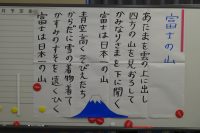 富士の山
あたまを雲の上に出し
四方の山を見おろして
かみなりさまを下に聞く
富士は日本一の山
青空高くそびえたち
からだに雪の着物着て
かすみのすそを遠くひく
富士は日本一の山